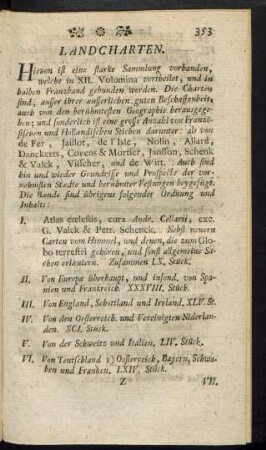 353
LANDCHARTEN.
Hievon ist eine starke Sammlung vorhanden,
welche in XII. Volumina vertheilet, und in
halben Franzband gebunden worden. Die Charten
sind, ausser ihrer ausserlichen guten Beschaffenheit,
auch von den berühmtesten Geographis herausgege-
ben; und sonderlich ist eine grose Anzahl von Franzö-
sischen und Holländischen Stichen darunter: als von
de Fer, Jaillot, de l'Isle, Nolin, Allard,
Danckerts, Covens & Mortier, Jansson, Schenk
& Valk, Visscher, und de Witt. Auch sind
hin und wieder Grundrisse und Prospecte der vor-
nehmsten Städte und berühmter Festungen beygefügt.
Die Bände sind übrigens folgender Ordnung und
Inhalts:
I. Atlas cœlestis, cura Andr. Cellarii, exc.
G. Valck & Petr. Schenck. Nebst neuern
Carten vom Himmel, und denen, die zum Glo-
bo terrestri gehören, und sonst allgemeine Sa-
chen erläutern. Zusammen LX. Stück.
II. Von Europa überhaupt, und insond. von Spa-
nien und Frankreich. XXXVIII. Stück.
III. Von England, Schottland und Ireland. XLV. St.
IV. Von den Oesterreich. und Vereinigten Niderlan-
den. XCI. Stück.
V. Von der Schweitz und Italien. LIV. Stück.
VI. Von Teutschland 1) Oesterreich, Bayern, Schwa-
ben und Franken. LXIV. Stück.
Z VII.